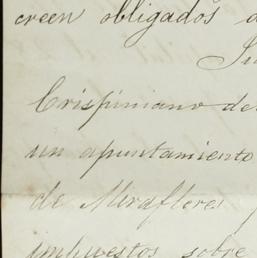 creen obligados a
Crispiniano de
un apuntamiento
de Miraflores
impuestos sobre